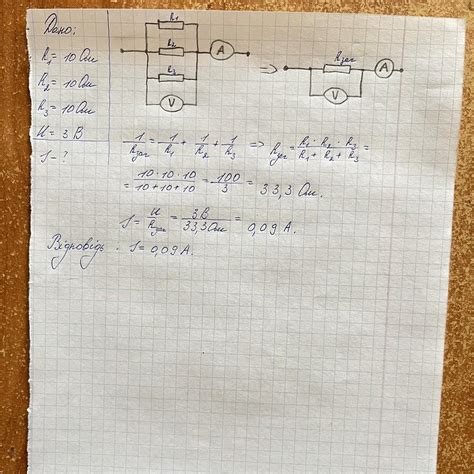 Дано:
R₁ = 10 Ом
R₂ = 10 Ом
R₃ = 10 Ом
U = 3 В
I - ?
R₁
R₂
R₃
V
A
=>
Rзаг
V
A
1/Rзаг = 1/R₁ + 1/R₂ + 1/R₃ => Rзаг = R₁ · R₂ · R₃ / R₁ + R₂ + R₃ =
= 10 · 10 · 10 / 10 + 10 + 10 = 100 / 3 = 33,3 Ом.
I = U / Rзаг = 3 В / 33,3 Ом = 0,09 А.
Відповідь: I = 0,09 А.